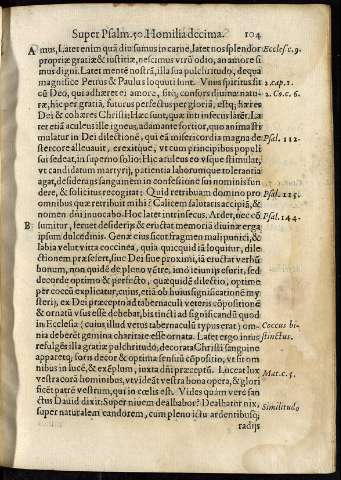 Super Psalm. 50. Homilia decima. 104
A mus, Latet enim quā diu sumus in carne, latet nos splendor Eccles. c. 9.
propriæ gratiæ & iustitiæ, nescimus vtrū odio, an amore si
mus digni. Latet mentē nostrā, illa sua pulchritudo, de qua
magnifice Petrus & Paulus loquuti sunt. Vnus spiritus fit 2. cap. 1.
cū Deo, qui adhæret ei amore, sitq; consors diuinæ natu- 2. Co. c. 6.
ræ, hic per gratiā, futurus perfectus per gloriā, estq; hæres
Dei & cohæres Christi: Hæc sunt, quæ intrinsecus latēt. La
tet etiā aculeus ille igneus, adamante fortior, quo anima sti
mulatur in Dei dilectionē, qui eā misericordia magna de Psal. 112.
stercore alleuauit, erexitque, vt cum principibus populi
sui sedeat, in superno solio: Hic aculeus eo vsque stimulat,
vt candidatum martyrij, patientia laborumque tolerantia
agat, desideras sanguinem in confessione sui nominis fun
dere, & solicitus recogitat: Quid retribuam domino pro Psal. 115.
omnibus quæ retribuit mihi? Calicem salutaris accipiā, &
nomen dñi inuocabo. Hoc latet intrinsecus. Ardet, nec cō Psal. 144.
B sumitur, feruet desiderijs & eructat memoria diuinæ erga
ipsum dulcedinis. Genæ eius sicut fragmen mali punici, &
labia velut vitta coccinea, quia quicquid iā loquitur, dile-
ctionem præsefert, siue Dei siue proximi, iā eructat verbū
bonum, non quidē de pleno vētre, imò ieiunijs esurit, sed
de corde optimo & perfecto, quæ quidē dilectio, optime
per coccū explicatur, cuius, etiā ob huius significationē my
sterij, ex Dei præcepto ad tabernaculi veteris cōpositionē
& ornatū vsus esse debebat, bis tincti ad significandū quod
in Ecclesia (cuius, illud vetus tabernaculū typus erat) om- Coccus bi-
nia deberēt gemina charitate esse ornata. Latet ergo interius stinctus.
refulgēs illa gratiæ pulchritudo, decorata Christi sanguine
apparetq; foris decor & optima sensuū cōpositio, vt sit om
nibus in lucē, & exēplum, iuxta dñi præceptū. Luceat lux
vestra corā hominibus, vt videāt vestra bona opera, & glori Mat. c. 5.
ficēt patrē vestrum, qui in cœlis est. Vides quàm verè san-
ctus Dauid dixit: Super niuem dealbabor? Dealbatur nix,
super naturalem candorem, cum pleno ictu ardentibusq; Similitudo
radijs